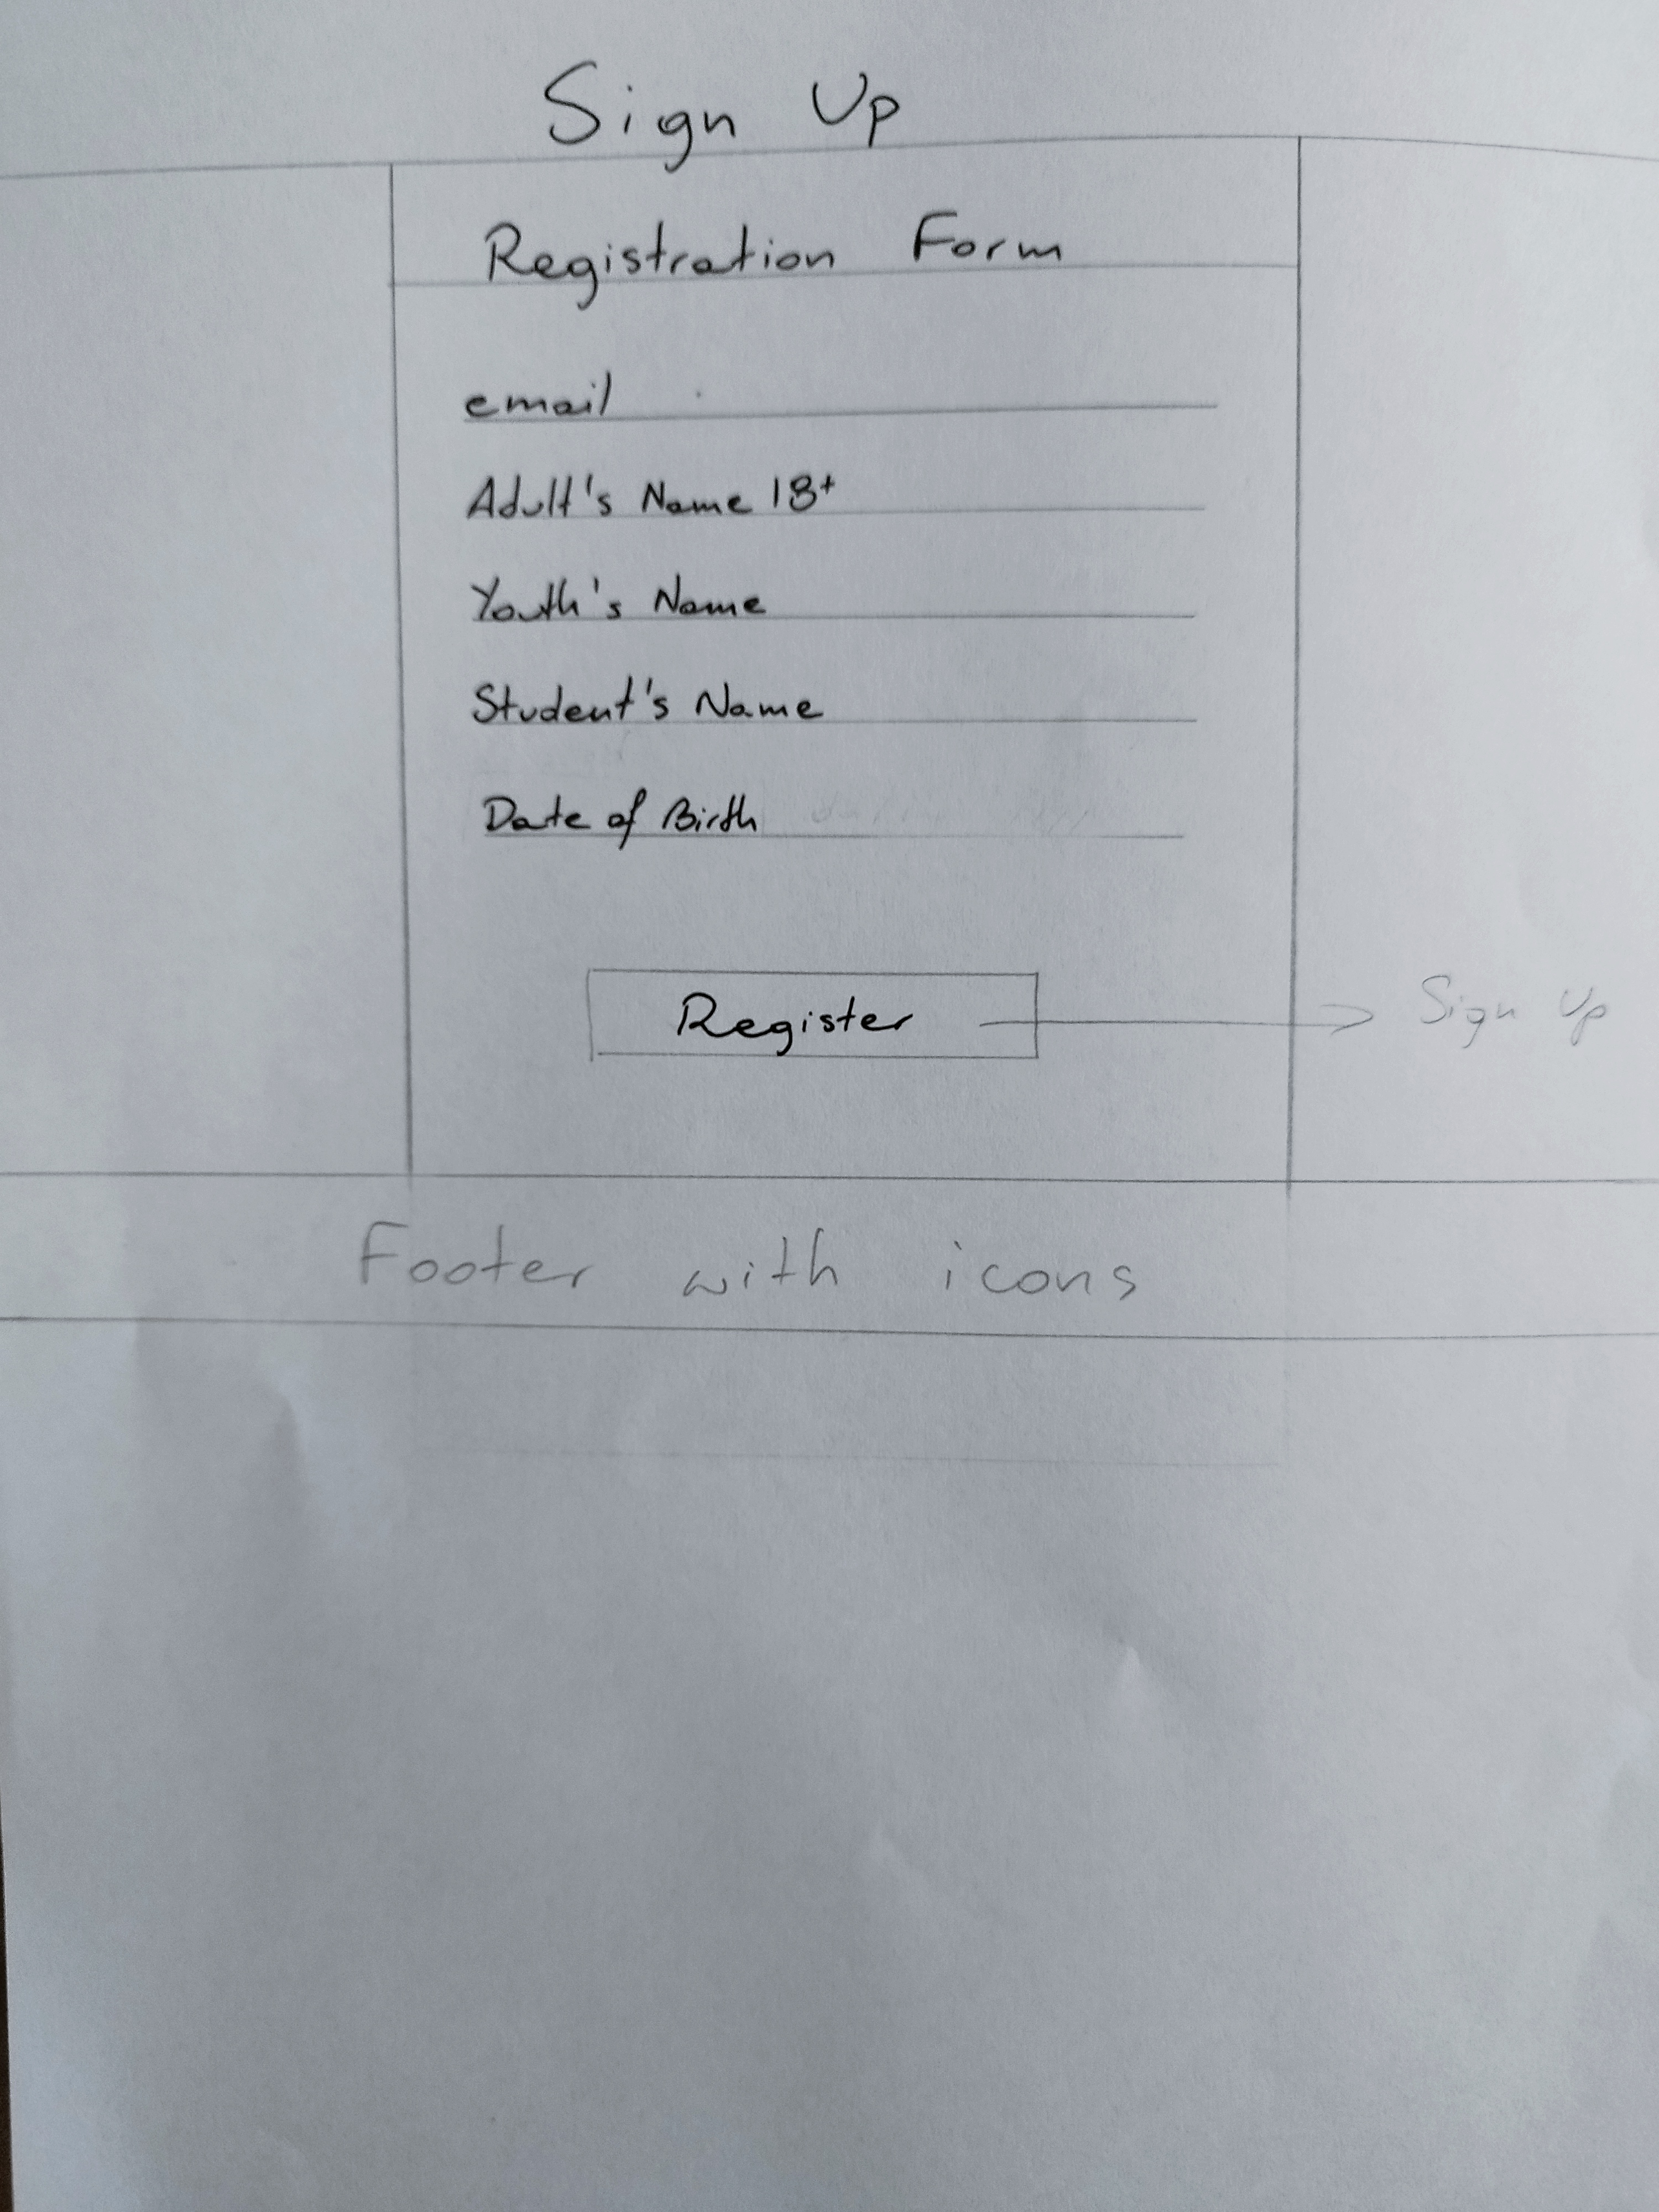 Sign Up
Registration Form
email
Adult's Name 18+
Youth's Name
Student's Name
Date of Birth
Register
Sign Up
Footer with icons